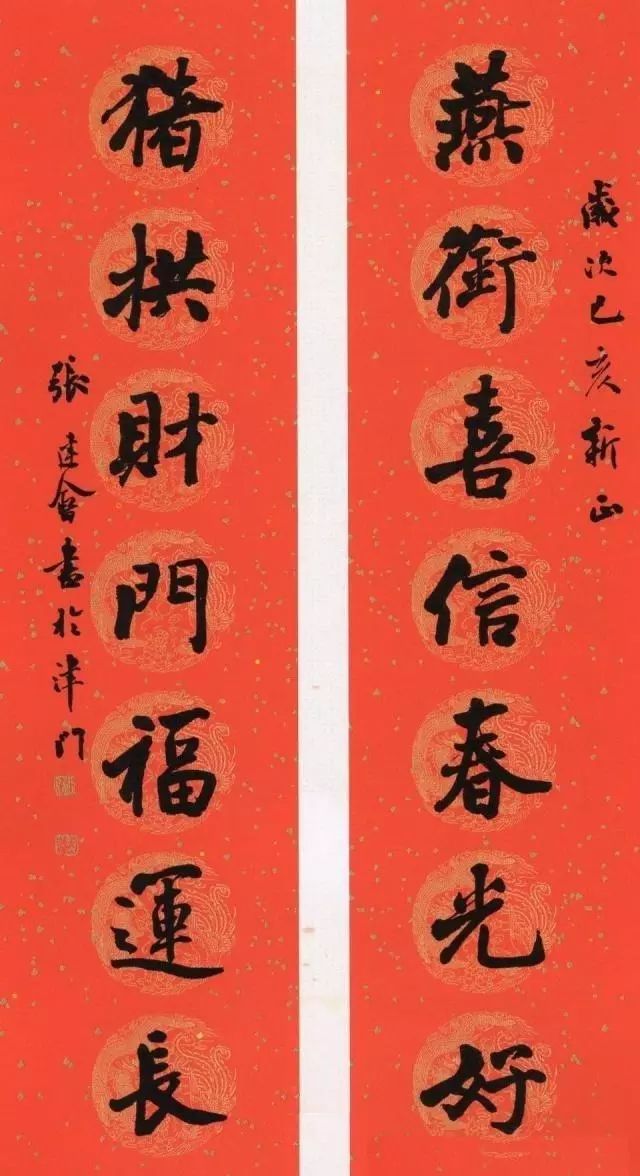 歲次己亥新正
燕銜喜信春光好
猪拱財門福運長
張建會書於津門